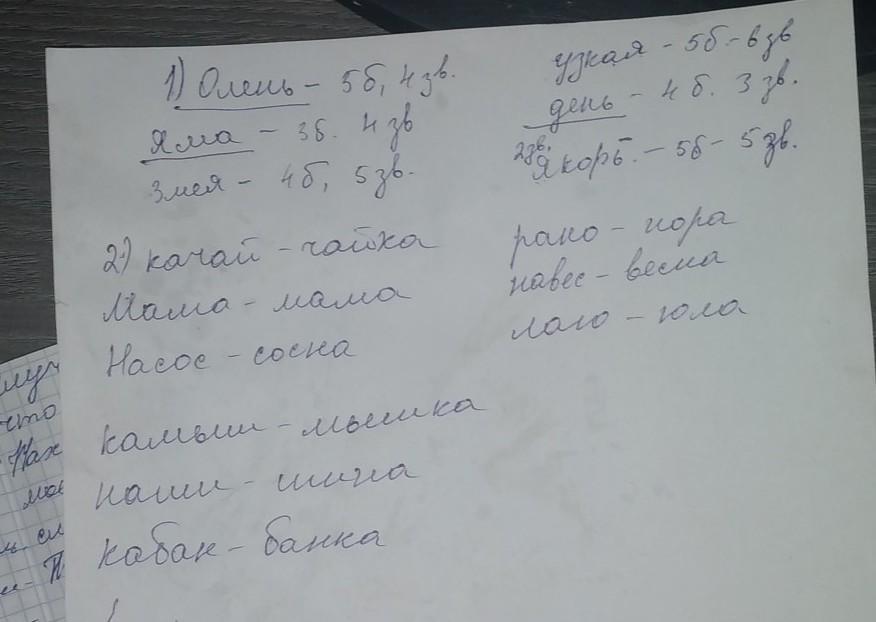 1) Олень - 5б, 4зв.
Яма - 3б. 4 зв
Змея - 4б, 5зв.
узкая - 5б - 6зв
день - 4 б. 3 зв.
2зв. Якорь - 5б - 5 зв.
2) качай - чайка
Мама - мама
Насос - сосна
рано - нора
навес - весна
лаю - юла
камыш - мышка
наши - шина
кабан - банка
муч
что
Нах
мое
сл
П